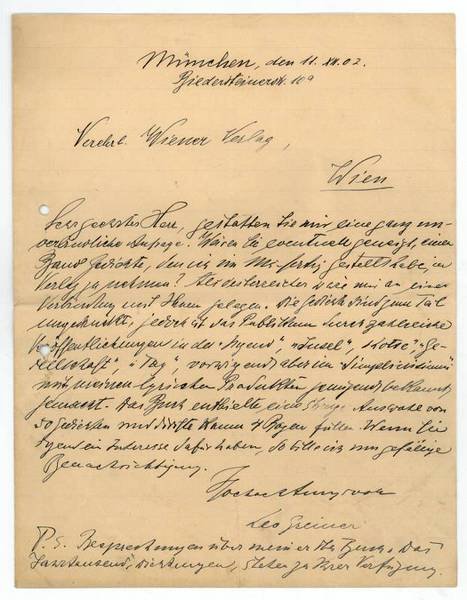 München, den 11. XII. 02.
Biedersteinerstr. 10 a
Verehrl. Wiener Verlag,
Wien
Sehr geehrter Herr, gestatten Sie mir eine ganz un-
verbindliche Anfrage: Wären Sie eventuell geneigt, einen
Band Gedichte, den ich im Ms. fertig gestellt habe, in
Verlag zu nehmen? Als Österreicher wäre mir an einer
Verbindung mit Ihnen gelegen. Die Gedichte sind zum Teil
ungedruckt, jedoch ist das Publikum durch zahlreiche
Veröffentlichungen in der "Jugend", "Insel", "Gesellschaft", "Tag", vorwiegend aber im Simplicissimus
mit meinen lyrischen Produkten genügend bekannt
gemacht. Das Buch enthielte eine Auswahl von
50 Gedichten und dürfte kaum 4 Bogen füllen. Wenn Sie
irgend ein Interesse dafür haben, so bitte ich um gefällige
Benachrichtigung.
Hochachtungsvoll
Leo Greiner
P. S. Besprechungen über mein Buch, "Das
Jahrtausend", Dichtungen, stehen zu Ihrer Verfügung.